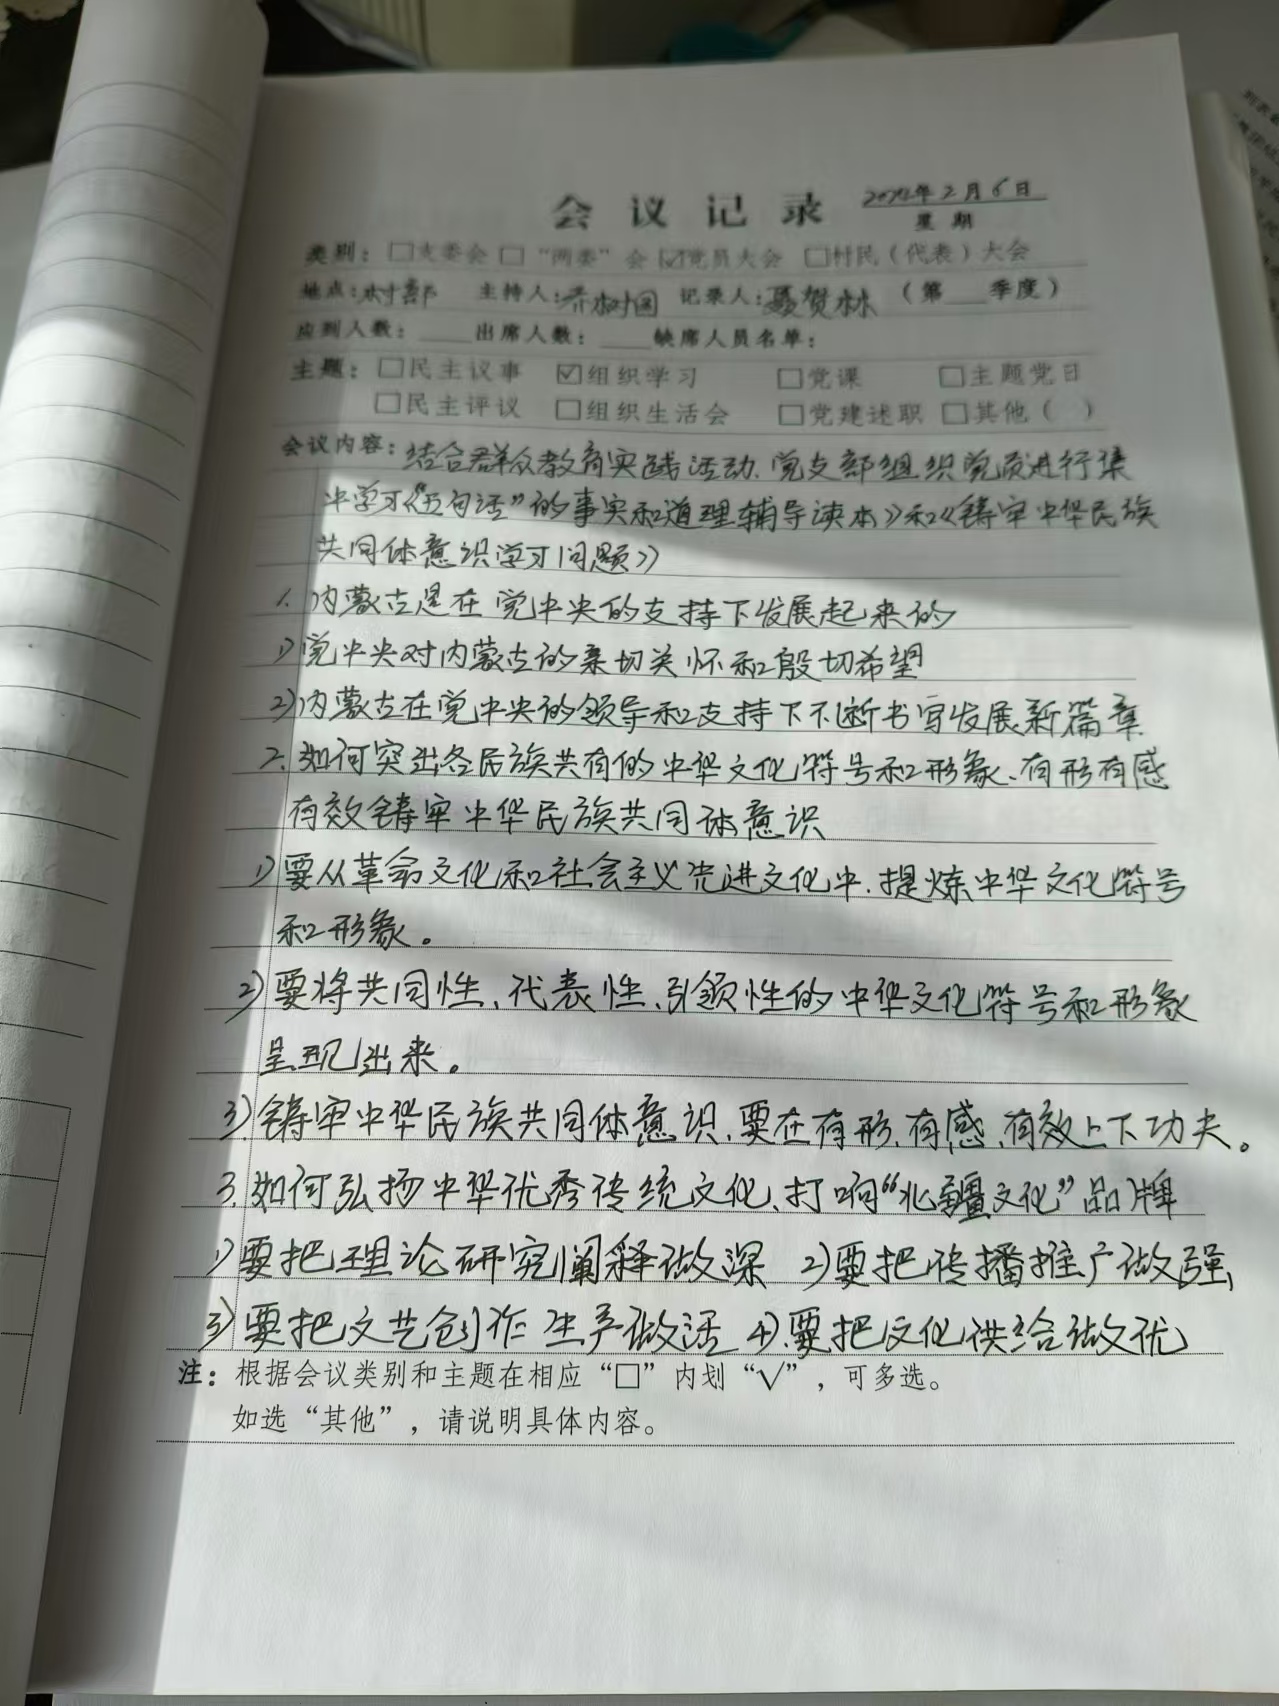 会议记录 2024年2月6日
星期
类别：□支委会 □“两委”会 ☑党员大会 □村民（代表）大会
地点：村部 主持人：乔树国 记录人：聂贺林 （第___季度）
应到人数：____ 出席人数：____ 缺席人员名单：
主题：□民主议事 ☑组织学习 □党课 □主题党日
□民主评议 □组织生活会 □党建述职 □其他（ ）
会议内容：结合群众教育实践活动、党支部组织党员进行集
中学习《“五句话”的事实和道理辅导读本》和《铸牢中华民族
共同体意识学习问题》
1、内蒙古是在党中央的支持下发展起来的
1)党中央对内蒙古的亲切关怀和殷切希望
2)内蒙古在党中央的领导和支持下不断书写发展新篇章
2、如何突出各民族共有的中华文化符号和形象、有形有感
有效铸牢中华民族共同体意识
1)要从革命文化和社会主义先进文化中、提炼中华文化符号
和形象。
2)要将共同性、代表性、引领性的中华文化符号和形象
呈现出来。
3)铸牢中华民族共同体意识、要在有形、有感、有效上下功夫。
3、如何弘扬中华优秀传统文化、打响“北疆文化”品牌
1)要把理论研究阐释做深 2)要把传播推广做强、
3)要把文艺创作生产做活 4)要把文化供给做优
注：根据会议类别和主题在相应“□”内划“√”，可多选。
如选“其他”，请说明具体内容。